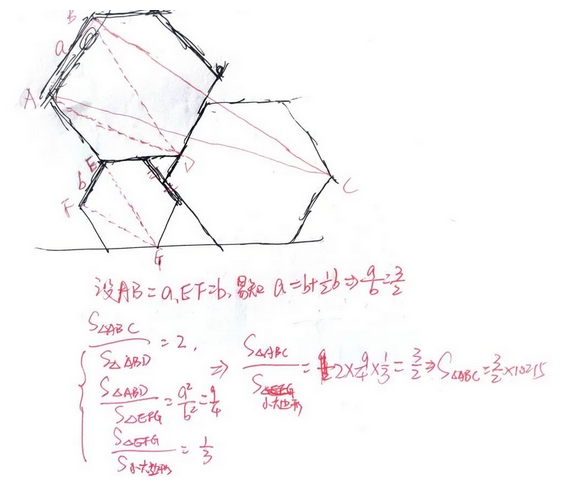 B
a
A
E
D
b
F
C
G
设AB=a,EF=b,易知 a=b+½b⇒a/b=3/2
S△ABC/S△ABD=2,
S△ABD/S△EFG=a²/b²=9/4
S△EFG/S小六边形=1/3
⇒ S△ABC/S小六边形=2×9/4×1/3=3/2⇒S△ABC=3/2×10=15